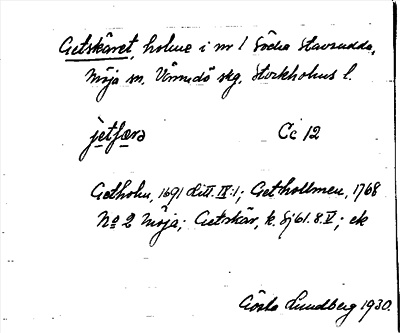 Getskäret, holme i nr 1 Södra Stavsudda,
Möja sn. Värmdö skg. Stockholms l.
jetfæra Cc 12
Getholm, 1691 Litt. IX:1; Gethollmen, 1768
No 2 Möja; Getskär, k. Sj 61. 8. V; ek
Gösta Lundberg 1930.